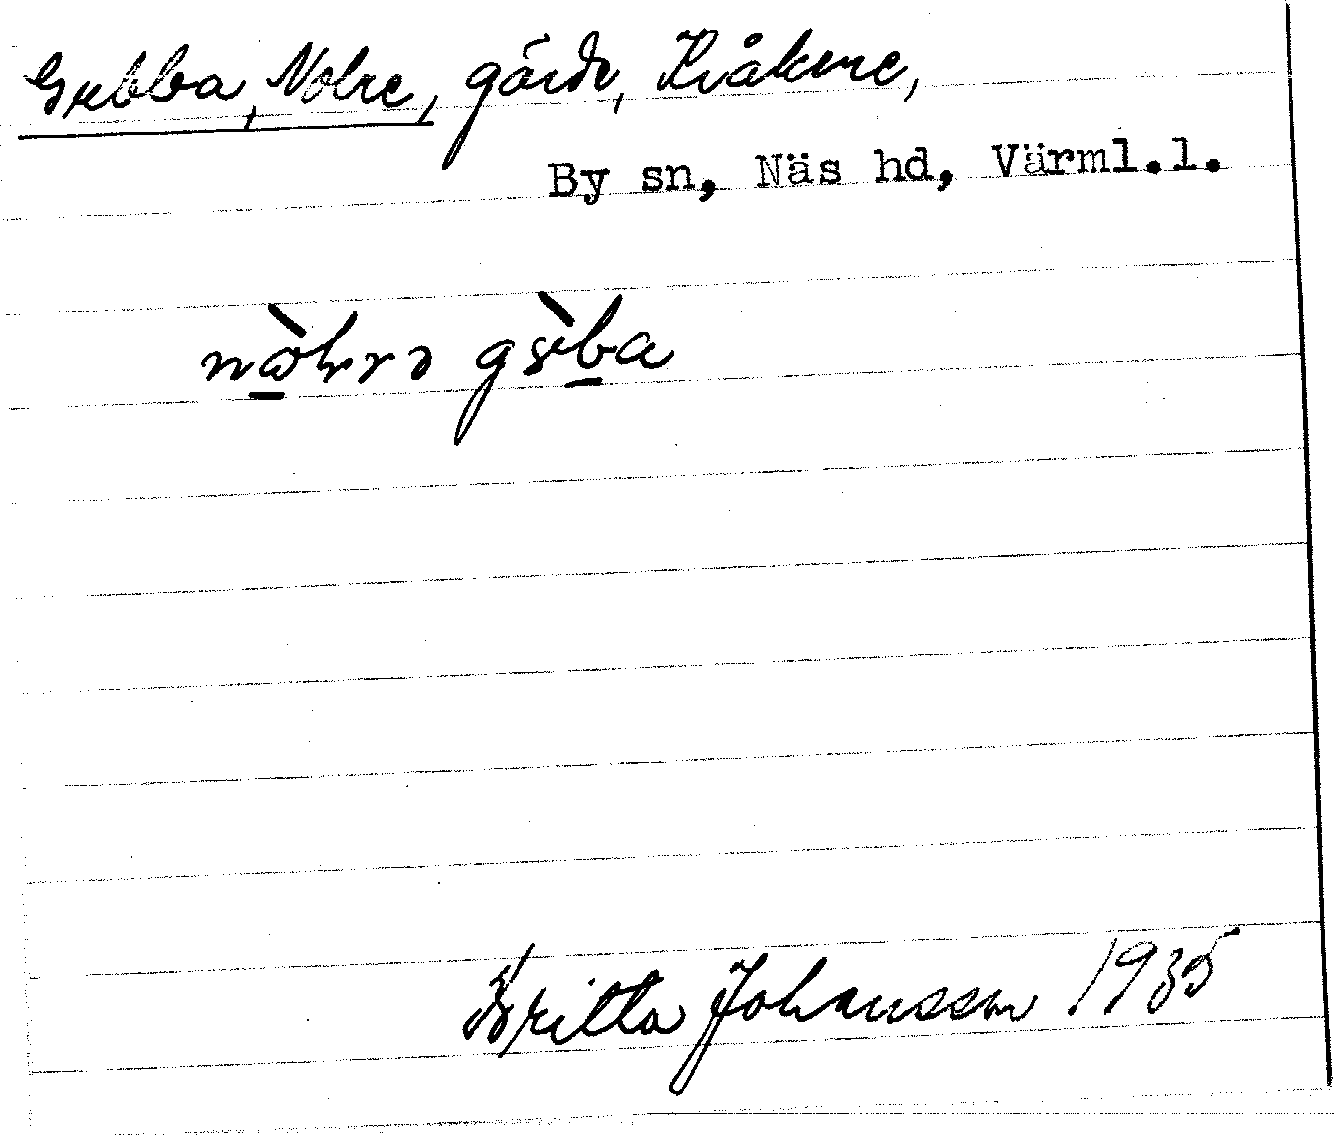 Gubba, Nolre, gärde, Kråkene,
By sn, Näs hd, Värml.l.
Britta Johansson 1935